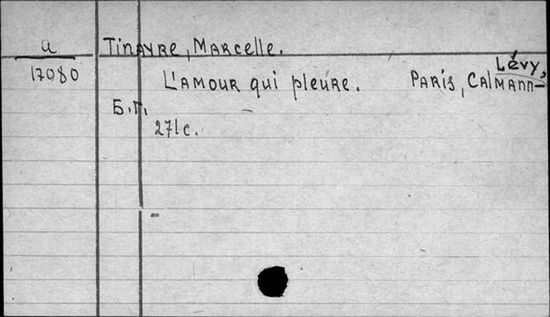 a Tinayre, Marcelle.
17080 L'amour qui pleure. Paris, Calmann-Lévy,
Б.г.
271с.